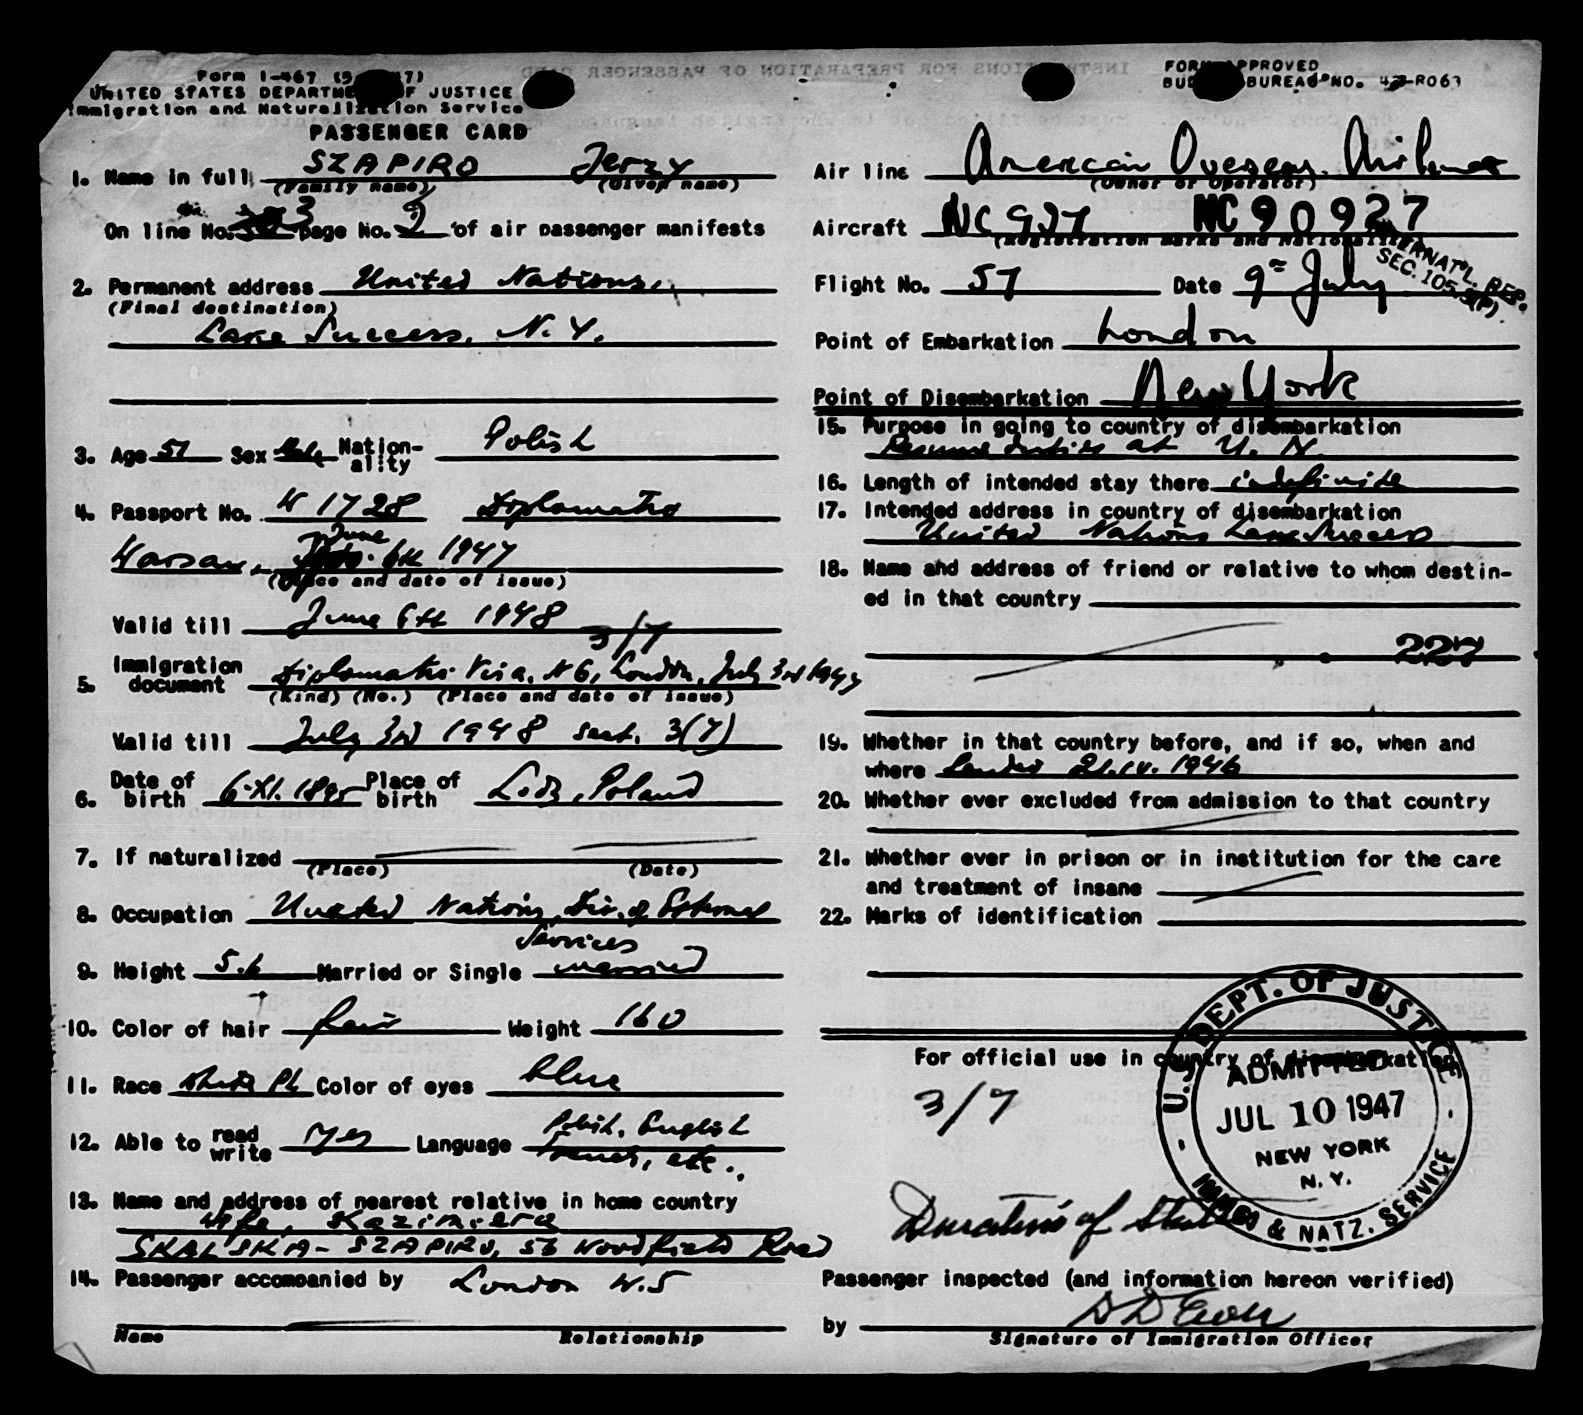 Form I-467
UNITED STATES DEPARTMENT OF JUSTICE
Immigration and Naturalization Service
PASSENGER CARD
1. Name in full SZAPIRO Jerzy
(Family name) (Given name)
On line No. 3 page No. 2 of air passenger manifests
2. Permanent address United Nations,
(Final destination)
Lake Success, N.Y.
3. Age 51 Sex Male Nation-ality Polish
4. Passport No. 1728 Diplomatic
Warsaw, June 6th 1947
(Office and date of issue)
Valid till June 6th 1948
3/7
5. Immigration document Diplomatic Visa, No 6, London, July 3rd 1947
(Kind) (No.) (Place and date of issue)
Valid till July 3rd 1948 sect. 3(7)
6. Date of birth 6.XI.1895 Place of birth Lodz, Poland
7. If naturalized
(Place) (Date)
8. Occupation United Nations, Div. of External
Services
9. Height 5.6 Married or Single married
10. Color of hair fair Weight 160
11. Race white Color of eyes blue
12. Able to read write yes Language Polish, English
French, etc.
13. Name and address of nearest relative in home country
Wife, Kazimiera
SKALSKA-SZAPIRO, 56 Woodfield Road
14. Passenger accompanied by London W.5
Name Relationship
FORM APPROVED
BUDGET BUREAU NO. 43-R063
Air line American Overseas Airlines
(Owner or Operator)
Aircraft NC 927 NC90927
(Registration marks and Nationality)
INTERNAT'L. REP.
SEC. 105.3(P)
Flight No. 57 Date 9th July
Point of Embarkation London
Point of Disembarkation New York
15. Purpose in going to country of disembarkation
Resume duties at U.N.
16. Length of intended stay there indefinite
17. Intended address in country of disembarkation
United Nations Lake Success
18. Name and address of friend or relative to whom destin-
ed in that country
227
19. Whether in that country before, and if so, when and
where Landed 21.IV.1946
20. Whether ever excluded from admission to that country
21. Whether ever in prison or in institution for the care
and treatment of insane
22. Marks of identification
For official use in country of disembarkation
3/7
U.S. DEPT. OF JUSTICE
ADMITTED
JUL 10 1947
NEW YORK
N.Y.
IMMIG & NATZ. SERVICE
Duration of Status
Passenger inspected (and information hereon verified)
by
Signature of Immigration Officer